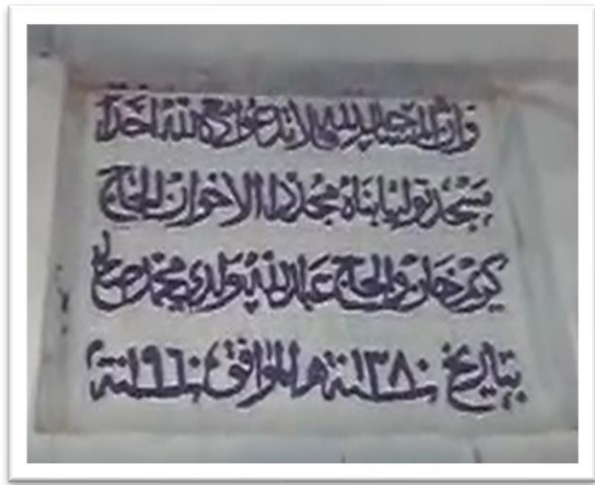 وأن المساجد لله فلا تدعوا مع الله أحدا
مسجد بناه مجددا الاخوان الحاج
كريم خان والحاج عبدالله ولدي محمد صالح
بتاريخ سنة ١٣٨٠ ه الموافق سنة ١٩٦٠ م